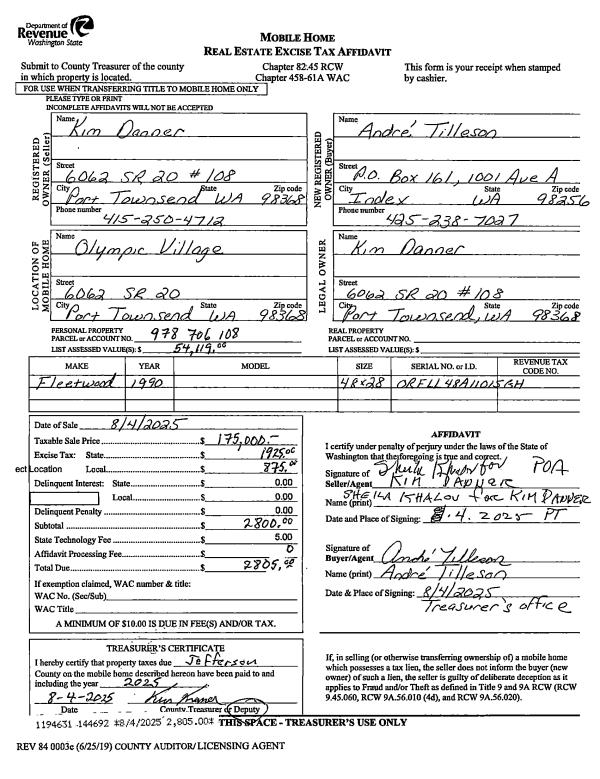 Department of
Revenue
Washington State
MOBILE HOME
REAL ESTATE EXCISE TAX AFFIDAVIT
Submit to County Treasurer of the county
in which property is located.
Chapter 82:45 RCW
Chapter 458-61A WAC
This form is your receipt when stamped
by cashier.
FOR USE WHEN TRANSFERRING TITLE TO MOBILE HOME ONLY
PLEASE TYPE OR PRINT
INCOMPLETE AFFIDAVITS WILL NOT BE ACCEPTED
REGISTERED
OWNER (Seller)
Name
Kim Danner
Street
6062 SR 20 #108
City State Zip code
Port Townsend WA 98368
Phone number
415-250-4712
NEW REGISTERED
OWNER (Buyer)
Name
André Tilleson
Street
P.O. Box 161, 1001 Ave A
City State Zip code
Index WA 98256
Phone number
425-238-7027
LOCATION OF
MOBILE HOME
Name
Olympic Village
Street
6062 SR 20
City State Zip code
Port Townsend, WA 98368
LEGAL OWNER
Name
Kim Danner
Street
6062 SR 20 #108
City State Zip code
Port Townsend, WA 98368
PERSONAL PROPERTY
PARCEL or ACCOUNT NO. 978 706 108
LIST ASSESSED VALUE(S): $ 54,119.00
REAL PROPERTY
PARCEL or ACCOUNT NO.
LIST ASSESSED VALUE(S): $
MAKE YEAR MODEL SIZE SERIAL NO. or I.D. REVENUE TAX CODE NO.
Fleetwood 1990 48x28 ORFLL48A11015GH
Date of Sale 8/4/2025
Taxable Sale Price $ 175,000.-
Excise Tax: State $ 1925.00
ect Location Local $ 875.00
Delinquent Interest: State $ 0.00
Local $ 0.00
Delinquent Penalty $ 0.00
Subtotal $ 2800.00
State Technology Fee $ 5.00
Affidavit Processing Fee $ 0
Total Due $ 2805.00
If exemption claimed, WAC number & title:
WAC No. (Sec/Sub)
WAC Title
A MINIMUM OF $10.00 IS DUE IN FEE(S) AND/OR TAX.
AFFIDAVIT
I certify under penalty of perjury under the laws of the State of
Washington that the foregoing is true and correct.
Signature of
Seller/Agent KIM DANNER POA
Name (print) SHEILA KHALOV for KIM DANNER
Date and Place of Signing: 8.4.2025 PT
Signature of
Buyer/Agent André Tilleson
Name (print) André Tilleson
Date & Place of Signing: 8/4/2025
Treasurer's office
TREASURER'S CERTIFICATE
I hereby certify that property taxes due Jefferson
County on the mobile home described hereon have been paid to and
including the year 2025
8-4-2025
Date County Treasurer or Deputy
If, in selling (or otherwise transferring ownership of) a mobile home
which possesses a tax lien, the seller does not inform the buyer (new
owner) of such a lien, the seller is guilty of deliberate deception as it
applies to Fraud and/or Theft as defined in Title 9 and 9A RCW (RCW
9.45.060, RCW 9A.56.010 (4d), and RCW 9A.56.020).
1194631 144692 *8/4/2025 2,805.00* THIS SPACE - TREASURER'S USE ONLY
REV 84 0003e (6/25/19) COUNTY AUDITOR/LICENSING AGENT